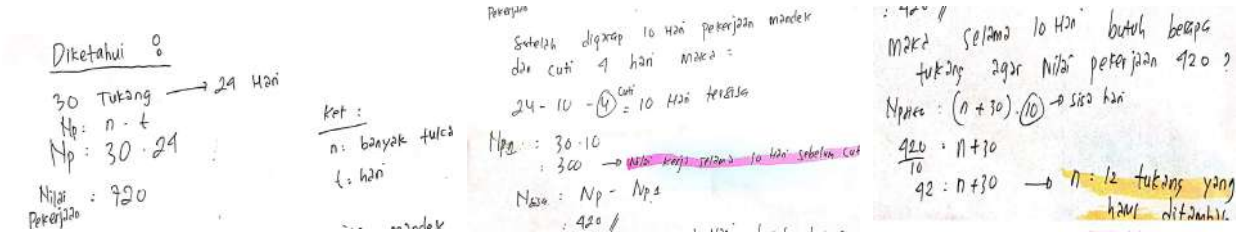 Diketahui :
30 Tukang → 24 Hari
Np : n · t
Np : 30 · 24
Nilai Pekerjaan : 720
ket :
n : banyak tuka
t : hari
mandek
Pekerjaan
Setelah digarap 10 Hari pekerjaan mandek
dan cuti 4 hari maka :
24 - 10 - 4 cuti = 10 Hari tersisa
Np1 : 30 · 10
: 300 → Nilai kerja selama 10 Hari sebelum cut
Nsisa : Np - Np1
: 420 //
: 420 //
maka selama 10 Hari butuh berapa
tukang agar Nilai pekerjaan 420 ?
(n + 30) · 10 → sisa hari
420/10 : n + 30
42 : n + 30 → n : 12 tukang yang
harus ditambah